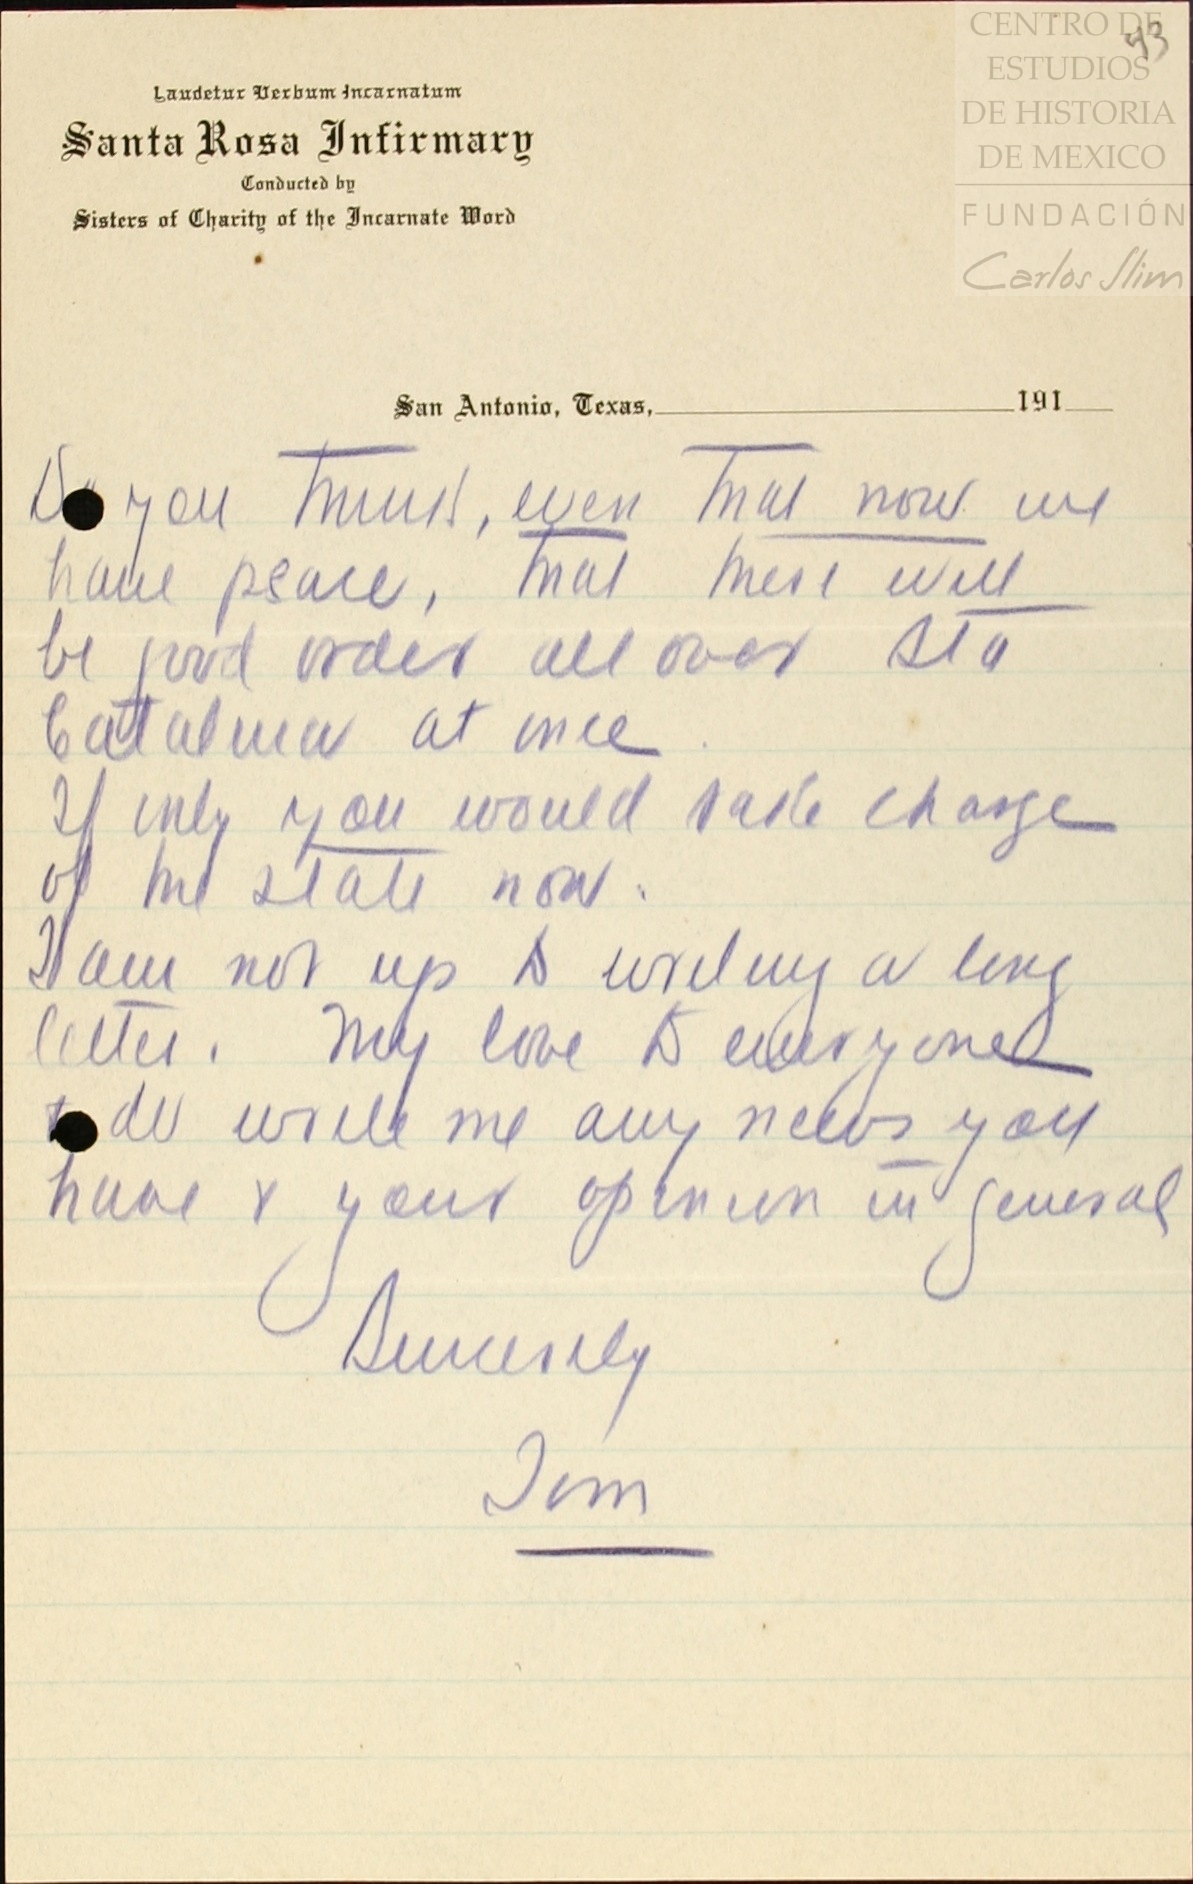 CENTRO DE
ESTUDIOS
DE HISTORIA
DE MEXICO
FUNDACIÓN
Carlos Slim
43
Laudetur Verbum Incarnatum
Santa Rosa Infirmary
Conducted by
Sisters of Charity of the Incarnate Word
San Antonio, Texas, 191
Do you think, even that now we
have peace, that there will
be good order all over Sta
Catalina at once.
If only you would take charge
of the state now.
I am not up to writing a long
letter. My love to everyone
do write me any news you
have & your opinion in general
Sincerely
Tom